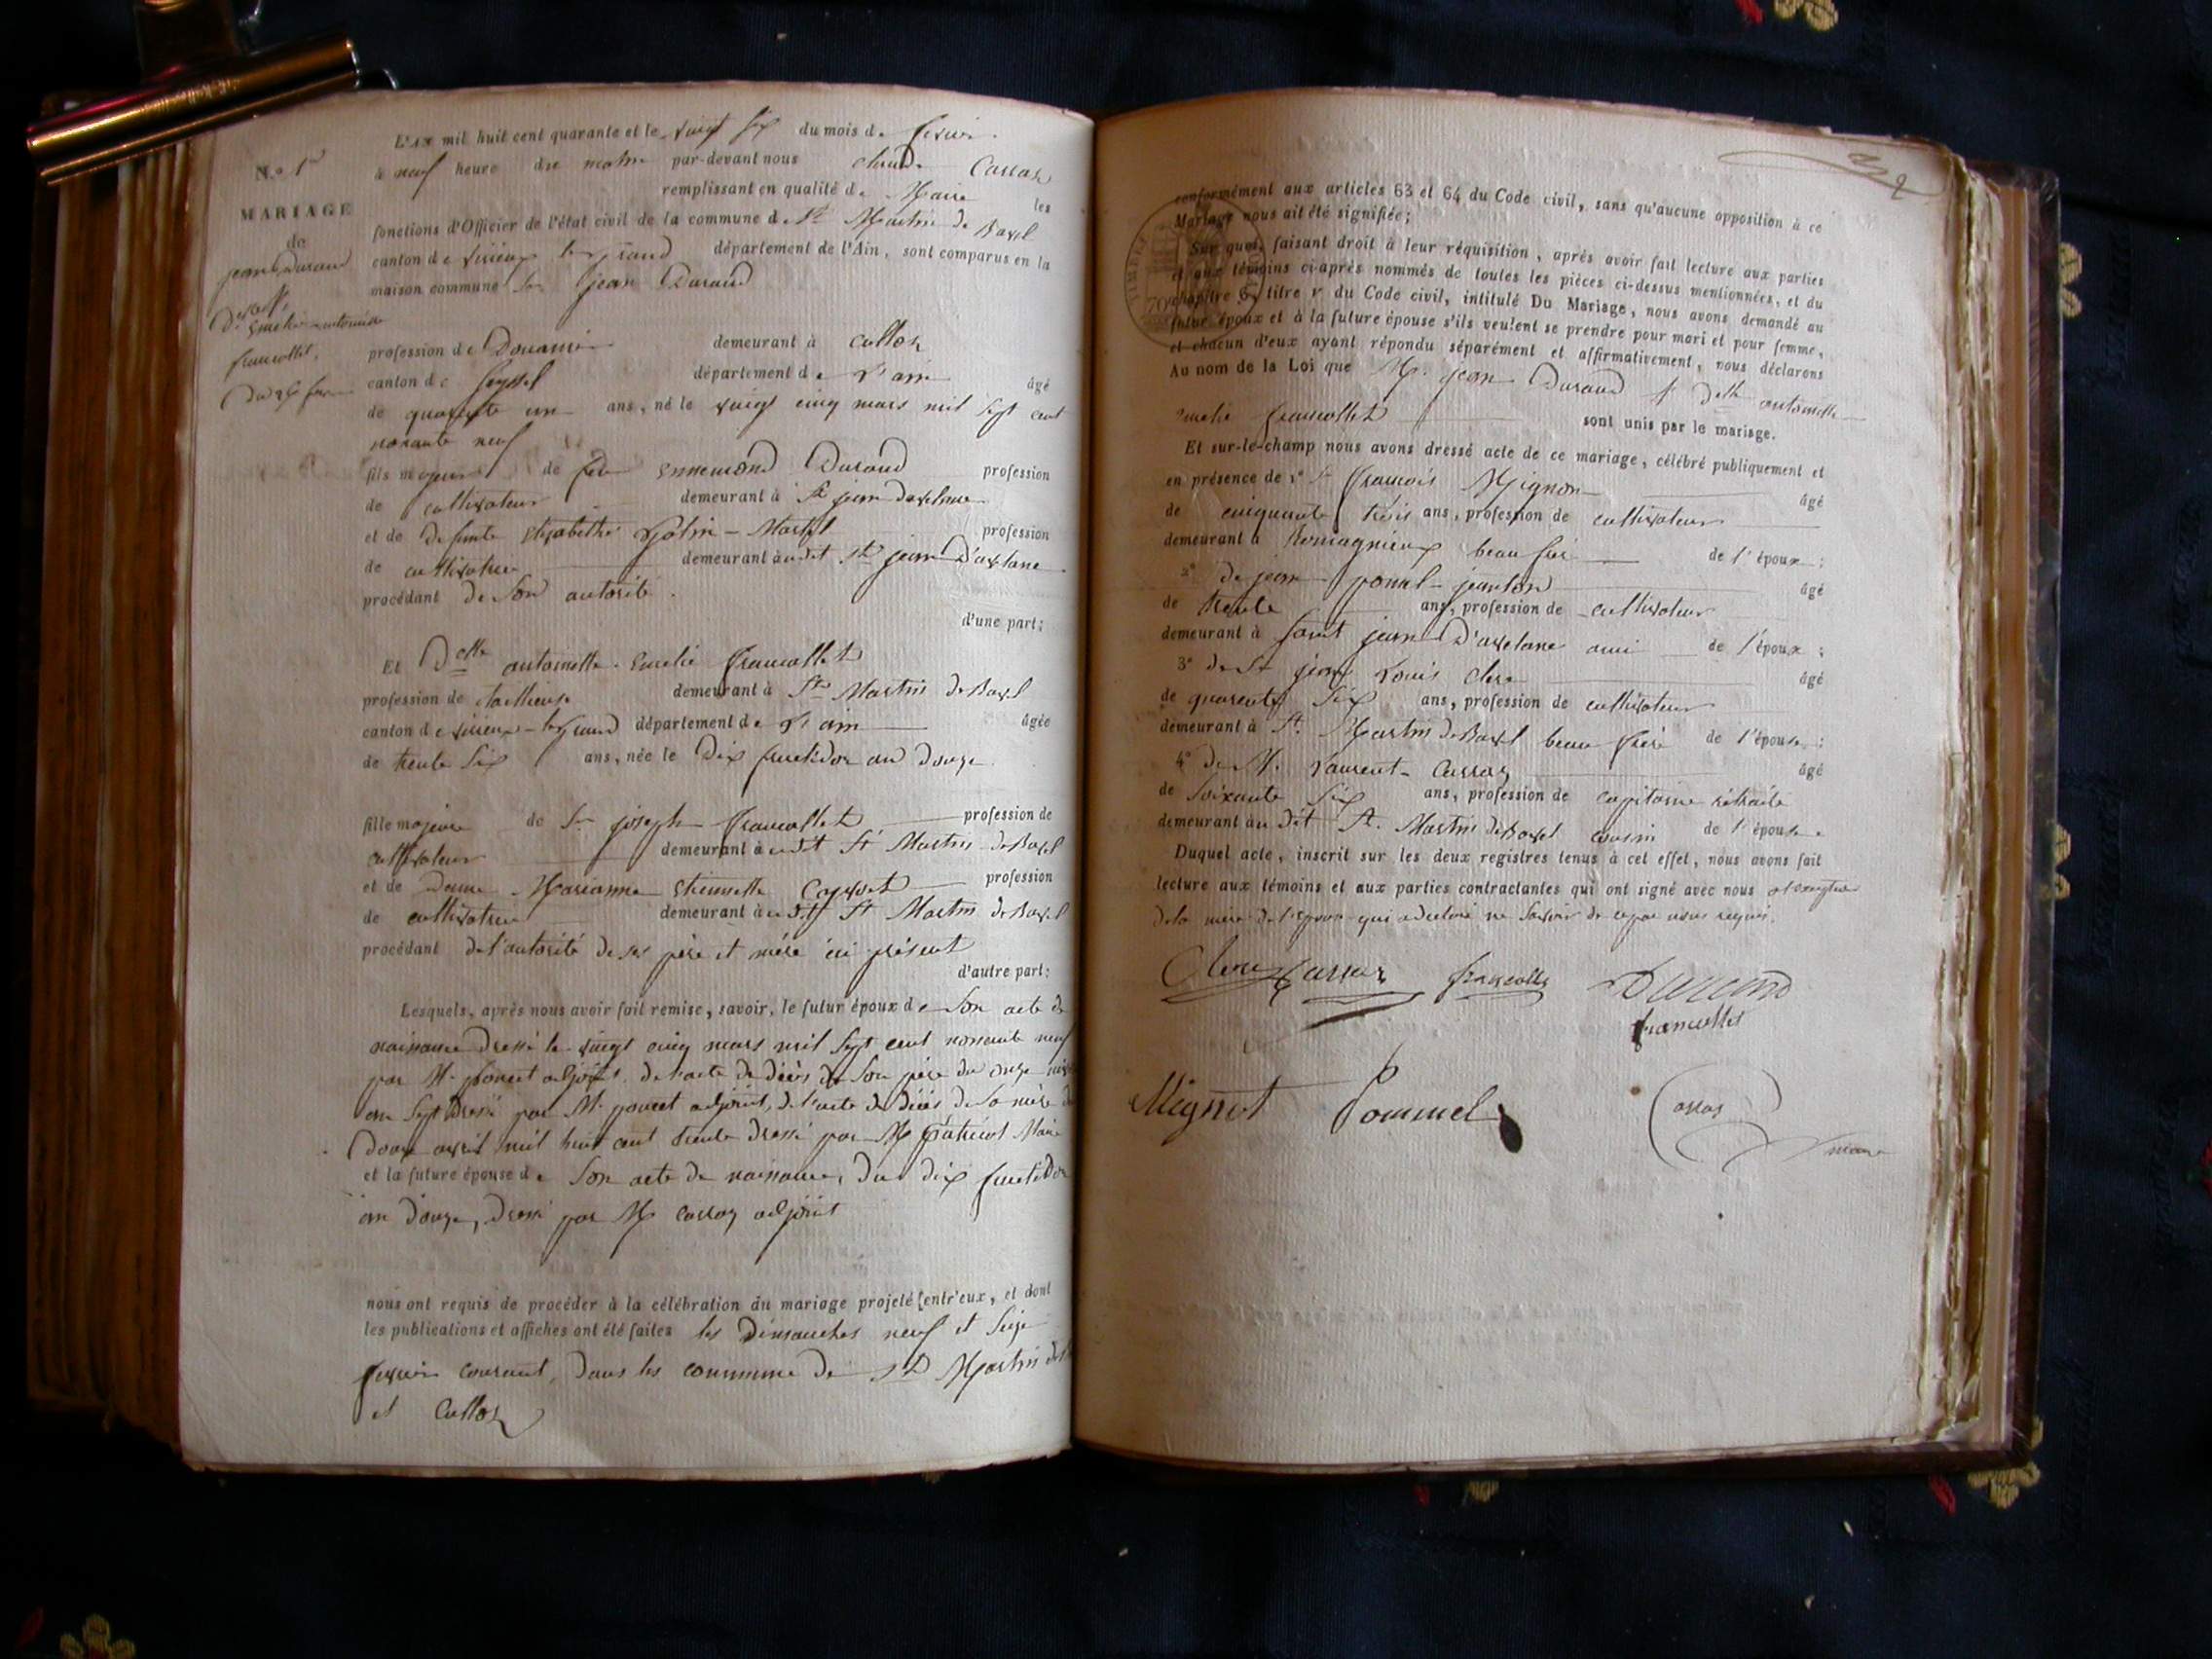 N.o 1er
MARIAGE
de
jean Durand
et
Dlle Emelie antoinette
francollet,
Du 26 fevrier
L'AN mil huit cent quarante et le vingt six du mois de fevrier
à neuf heure du matin par-devant nous claude Cassaz
remplissant en qualité de Maire les
fonctions d'Officier de l'état civil de la commune de St Martin de Bavel
canton de virieux le grand département de l'Ain, sont comparus en la
maison commune Sr jean Durand
profession de Douanier demeurant à culloz
canton de Seyssel département de L'ain âgé
de quarante un ans, né le vingt cinq mars mil sept cent
nonante neuf
fils majeur de feu Ennemond Durand profession
de cultivateur demeurant à St jean davelane
et de defunte Elizabethe profession
de cultivatrice demeurant audit St jean D'avelane
procédant de Son autorité.
d'une part;
Et Dlle antoinette Emelie francollet
profession de tailleuse demeurant à St Martin de Bavel
canton de virieux-le grand département de L'ain âgée
de trente Six ans, née le Dix fructidor an douze
fille majeure de Sr joseph francollet profession de
cultivateur demeurant audit St Martin de Bavel
et de Dame Marianne Etiennette profession
de cultivatrice demeurant audit St Martin de Bavel
procédant de l'autorité de ses père et mère ici présent
d'autre part;
Lesquels, après nous avoir fait remise, savoir, le futur époux de Son acte de
naissance dressé le vingt cinq mars mil Sept cent nonante neuf
par M. poncet adjoint, de l'acte de décès de Son père du onze
an Sept dressé par M. poncet adjoint, de l'acte de décès de Sa mère du
Douze avril mil huit cent trente dressé par M Maire
et la future épouse de Son acte de naissance, du dix fructidor
an douze, dressé par M cassaz adjoint
nous ont requis de procéder à la célébration du mariage projeté entr'eux, et dont
les publications et affiches ont été faites les Dimanches neuf et Seize
fevrier courant, dans les commune de St Martin de
et Culloz
2
conformément aux articles 63 et 64 du Code civil, sans qu'aucune opposition à ce
Mariage nous ait été signifiée;
Sur quoi, faisant droit à leur réquisition, après avoir fait lecture aux parties
et aux témoins ci-après nommés de toutes les pièces ci-dessus mentionnées, et du
chapitre 6, titre v du Code civil, intitulé Du Mariage, nous avons demandé au
futur époux et à la future épouse s'ils veulent se prendre pour mari et pour femme,
et chacun d'eux ayant répondu séparément et affirmativement, nous déclarons
Au nom de la Loi que M. jean Durand et Dlle antoinette
emelie francollet sont unis par le mariage.
Et sur-le-champ nous avons dressé acte de ce mariage, célébré publiquement et
en présence de 1° Sr francois Mignon âgé
de cinquante trois ans, profession de cultivateur
demeurant à Romagnieux beau frère de l'époux;
2° de jean ponul-jeanton âgé
de trente ans, profession de cultivateur
demeurant à Saint jean D'avelane ami de l'époux;
3° de Sr jean Louis Clerc âgé
de quarente Six ans, profession de cultivateur
demeurant à St. Martin de Bavel beau frère de l'épouse;
4° de M. Laurent Cassaz âgé
de Soixante Six ans, profession de capitaine retraité
demeurant au dit St. Martin de Bavel cousin de l'épouse.
Duquel acte, inscrit sur les deux registres tenus à cet effet, nous avons fait
lecture aux témoins et aux parties contractantes qui ont signé avec nous
de la mère de l'épouse qui a declaré ne Savoir de ce par nous requis.
Clerc Cassaz francollet Durand
francollet
Mignot Pommel Cassaz
maire